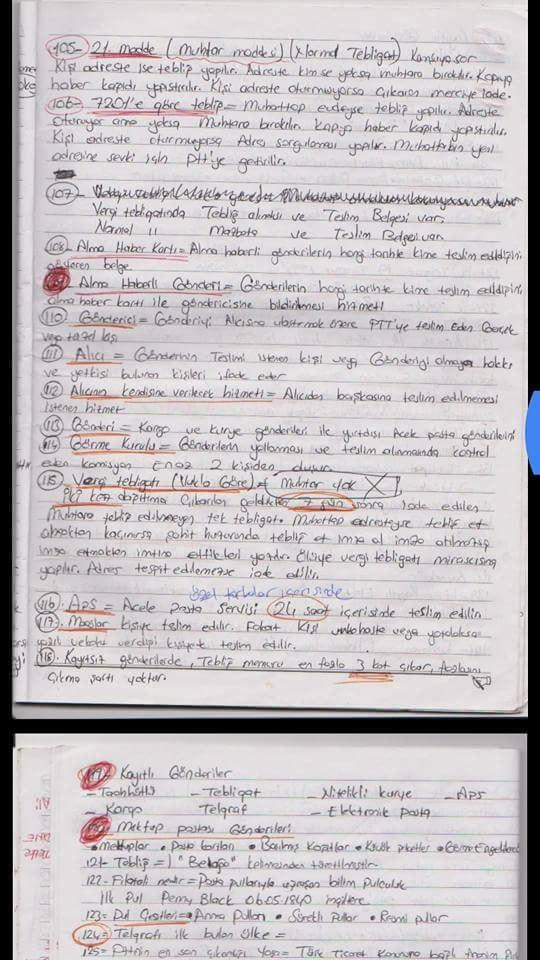 105- 21. madde (Muhtar maddesi) (Normal Tebligat)
Kişi adreste ise teblig yapılır. Adreste kimse yoksa muhtara bırakılır. Kapıya
haber kağıdı yapıştırılır. Kişi adreste oturmuyorsa çıkaran merciye iade.
106- 7201'e göre teblig = Muhattap evdeyse teblig yapılır. Adreste
oturuyor ama yoksa Muhtara bırakılır. Kapıya haber kağıdı yapıştırılır.
Kişi adreste oturmuyorsa Adres sorgulaması yapılır. Muhattabın yeni
adresine sevki için PTT'ye getirilir.
107-
Vergi tebligatında Tebliğ alındısı ve Teslim Belgesi var.
Normal " Mazbata ve Teslim Belgesi var
108- Alma Haber Kartı = Alma haberli gönderilerin hangi tarihte kime teslim edildiğini
gösteren belge
109 Alma Haberli Gönderi = Gönderilerin hangi tarihte kime teslim edildiğini,
alma haber kartı ile göndericisine bildirilmesi hizmeti
110 Gönderici = Gönderiyi Alıcısına ulaştırmak üzere PTT'ye teslim Eden Gerçek
veya tüzel kişi
111 Alıcı = Gönderinin Teslimi istenen kişi veya Gönderiyi almaya hakkı
ve yetkisi bulunan kişileri ifade eder
112 Alıcının kendisine verilecek hizmeti = Alıcıdan başkasına teslim edilmemesi
istenen hizmet
113 Gönderi = Kargo ve kurye gönderileri ile yurtdışı Acele posta gönderilerini
114 Görme Kurulu = Gönderilerin yollanması ve teslim alınmasında kontrol
eden komisyon En az 2 kişiden oluşur
115 Vergi tebligatı (Vuk'a Göre) = Muhtar yok X
İki kez dağıtıma çıkarılan geldikten 7 gün sonra iade edilen
Muhtara tebliğ edilmeyen tek tebligat. Muhattap adresteyse tebliğ et
almaktan kaçınırsa şahit huzurunda tebliğ et imza al imza atılmazsa
imza etmekten imtina ettikleri yazılır. Ölüye vergi tebligatı mirasçısına
yapılır. Adres tespit edilemezse iade edilir.
özel torbalar içerisinde
116. APS = Acele Posta Servisi 24 saat içerisinde teslim edilir
117. Maaşlar kişiye teslim edilir. Fakat kişi hasta veya yatalaksa
vekalet verdiği kişiye teslim edilir.
118. Kayıtsız gönderilerde, Tebliğ memuru en fazla 3 kat çıkar, fazlasını
çıkma şartı yoktur.
119. Kayıtlı Gönderiler
- Taahhütlü - Tebligat - Nitelikli kurye - APS
- Kargo Telgraf - Elektronik posta
120 Mektup postası Gönderileri
• mektuplar • Posta kartları • Basılmış Kağıtlar • Küçük paketler
121- Tebliğ = "Belağ" kelimesinden türetilmiştir
122- Filateli nedir = Posta pullarıyla uğraşan bilim Pulculuk
İlk Pul Penny Black 06.05.1840 İngiltere
123= Pul Çeşitleri = Anma Pulları • Sürekli Pullar • Resmi pullar
124= Telgrafı ilk bulan ülke =
125=